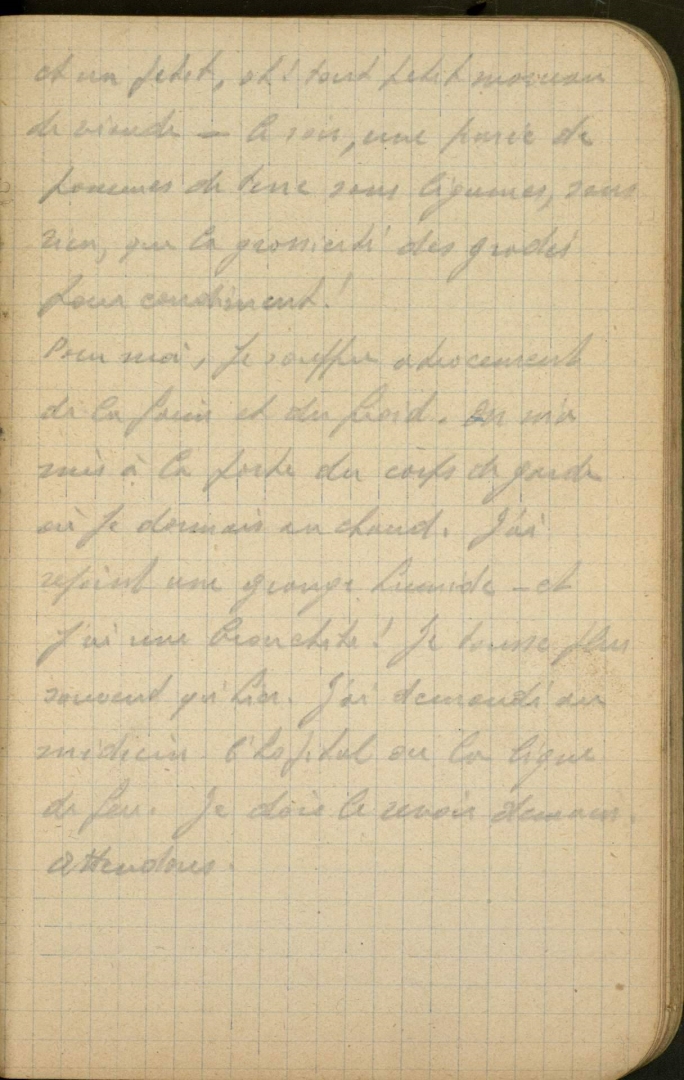 et un petit, oh! tout petit morceau
de viande — le soir, une purée de
pommes de terre sans légumes, sans
rien, que la grossièreté des gradés
pour condiment!
Pour moi, je souffre atrocement
de la faim et du froid. On m'a
mis à la porte du corps de garde
où je dormais au chaud. J'ai
rejoint une grange humide — et
j'ai une bronchite! Je tousse plus
souvent qu'hier. J'ai demandé au
médecin l'hôpital ou la ligne
de feu. Je dois le revoir demain.
Attendons.